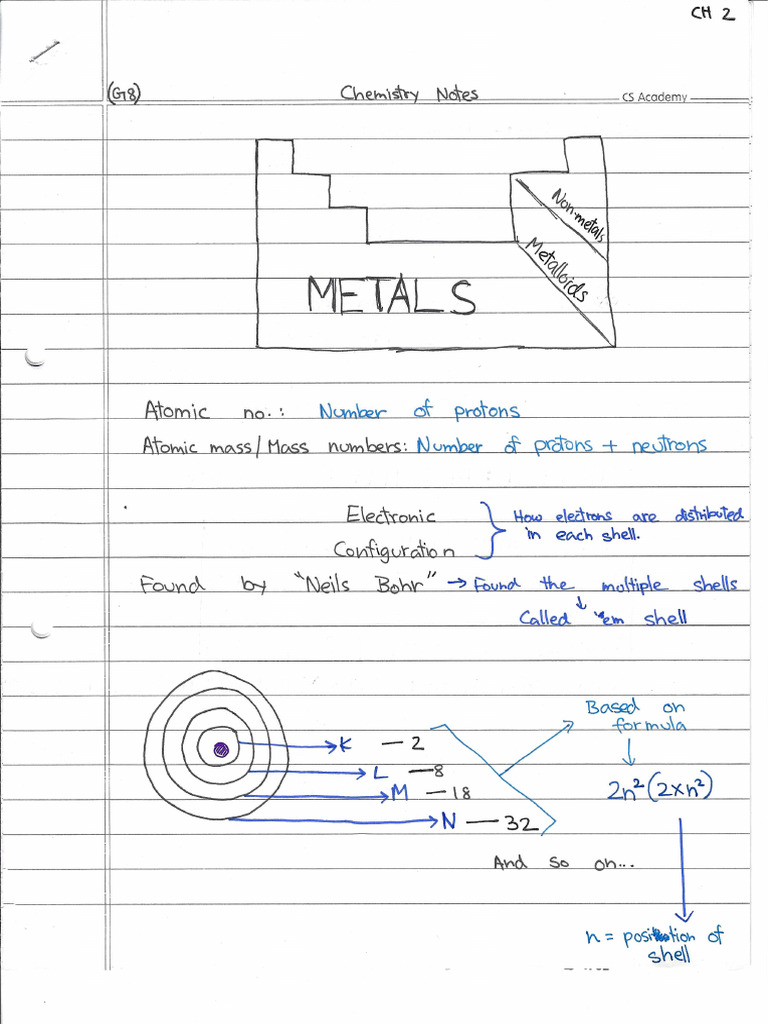 CH 2
(G8) Chemistry Notes CS Academy
Non-metals
Metalloids
METALS
Atomic no.: Number of protons
Atomic mass/Mass numbers: Number of protons + neutrons
Electronic
Configuration
How electrons are distributed
in each shell.
Found by "Neils Bohr" → Found the multiple shells
↓
Called 'em shell
Based on
formula
↓
K — 2
L — 8
M — 18
N — 32
2n² (2×n²)
And so on...
n = position of
shell